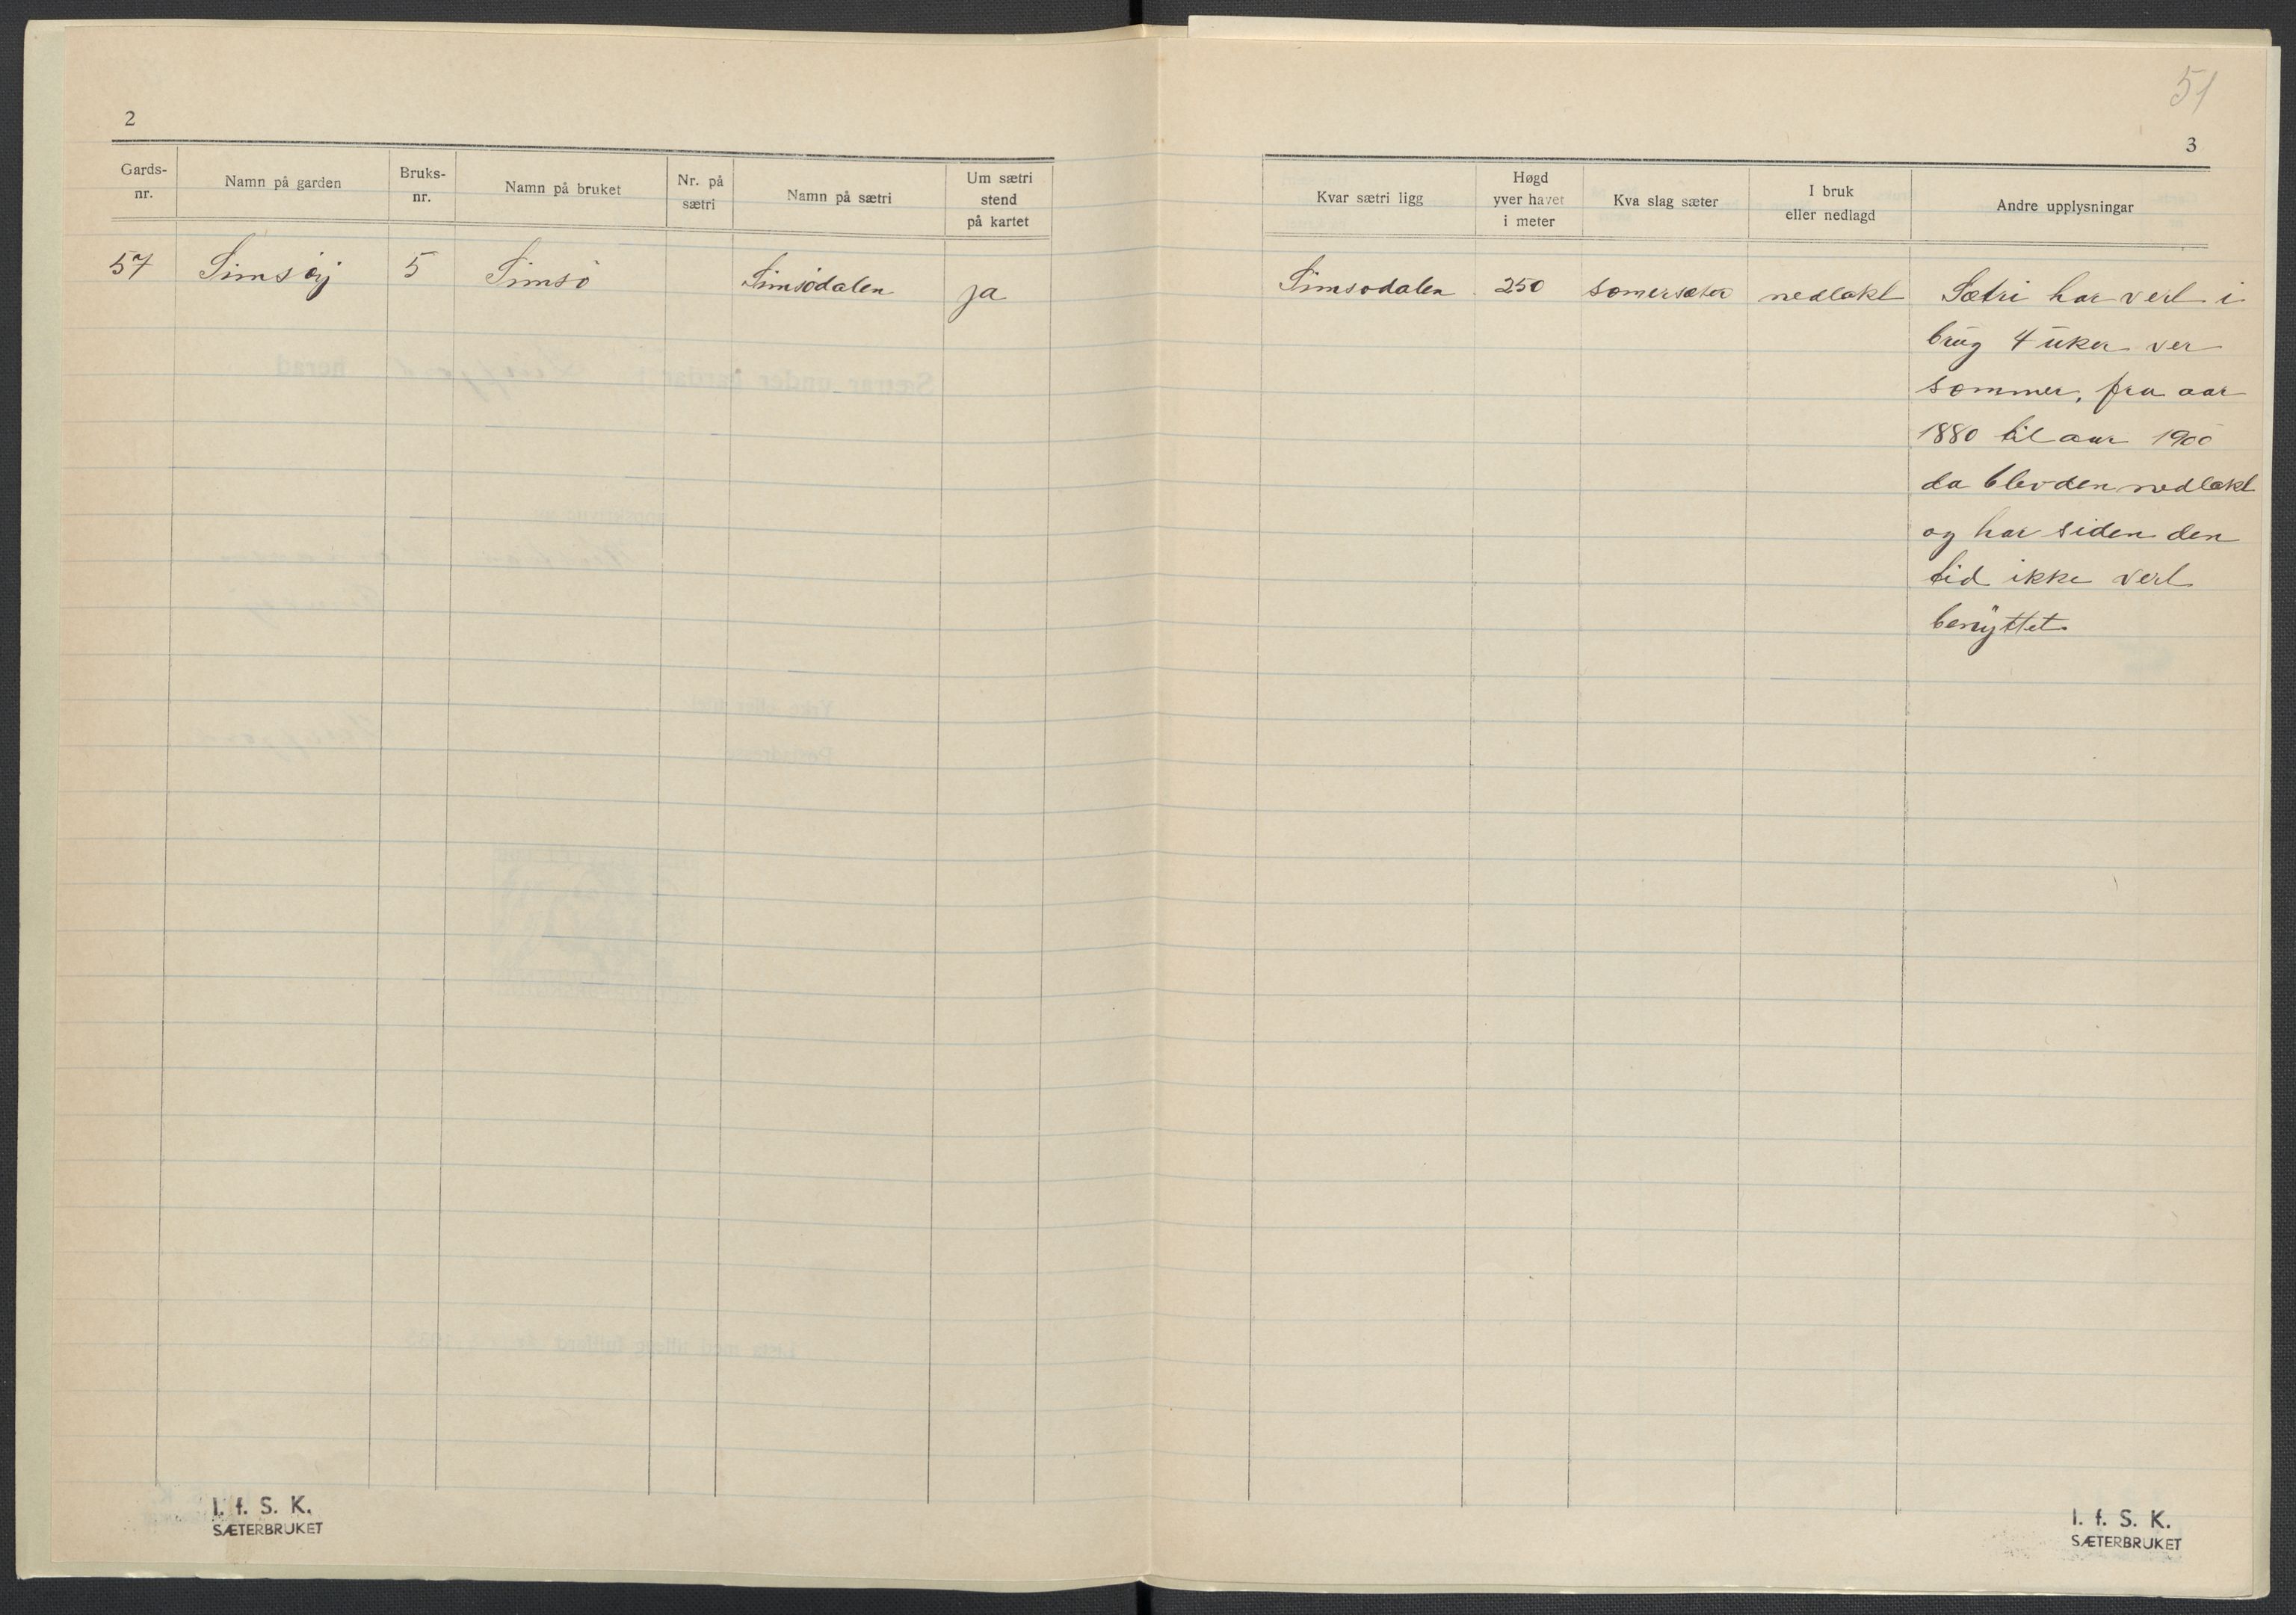 2
Gards-
nr.
Namn på garden
Bruks-
nr.
Namn på bruket
Nr. på
sætri
Namn på sætri
Um sætri
stend
på kartet
57 Simsøij 5 Simsö Simsödalen ja
I. f. S. K.
SÆTERBRUKET
51
3
Kvar sætri ligg
Høgd
yver havet
i meter
Kva slag sæter
I bruk
eller nedlagd
Andre upplysningar
Simsodalen 250 somersæter nedlakt Sætri har vert i
brug 4 uker ver
sommer, fra aar
1880 til aar 1900
da blev den nedlakt
og har siden den
tid ikke vert
benyttet
I. f. S. K.
SÆTERBRUKET